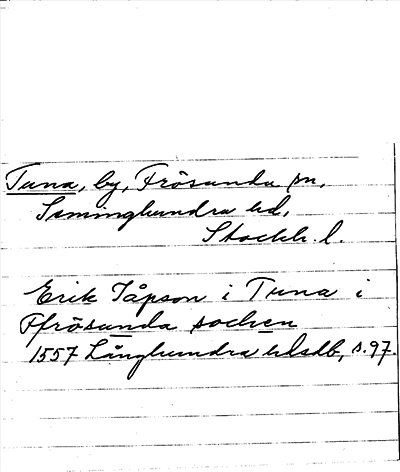 Tuna, by, Frösunda sn,
Seminghundra hd,
Stockh. l.
Erik Jåpson i Tuna i
Ffrösunda sochen
1557 Långhundra hdsdb, s. 97.